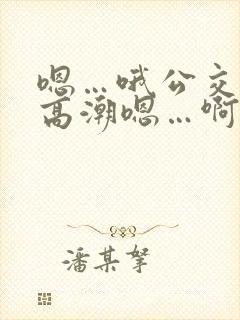 嗯…哦公交
高潮嗯…啊
潘某拏